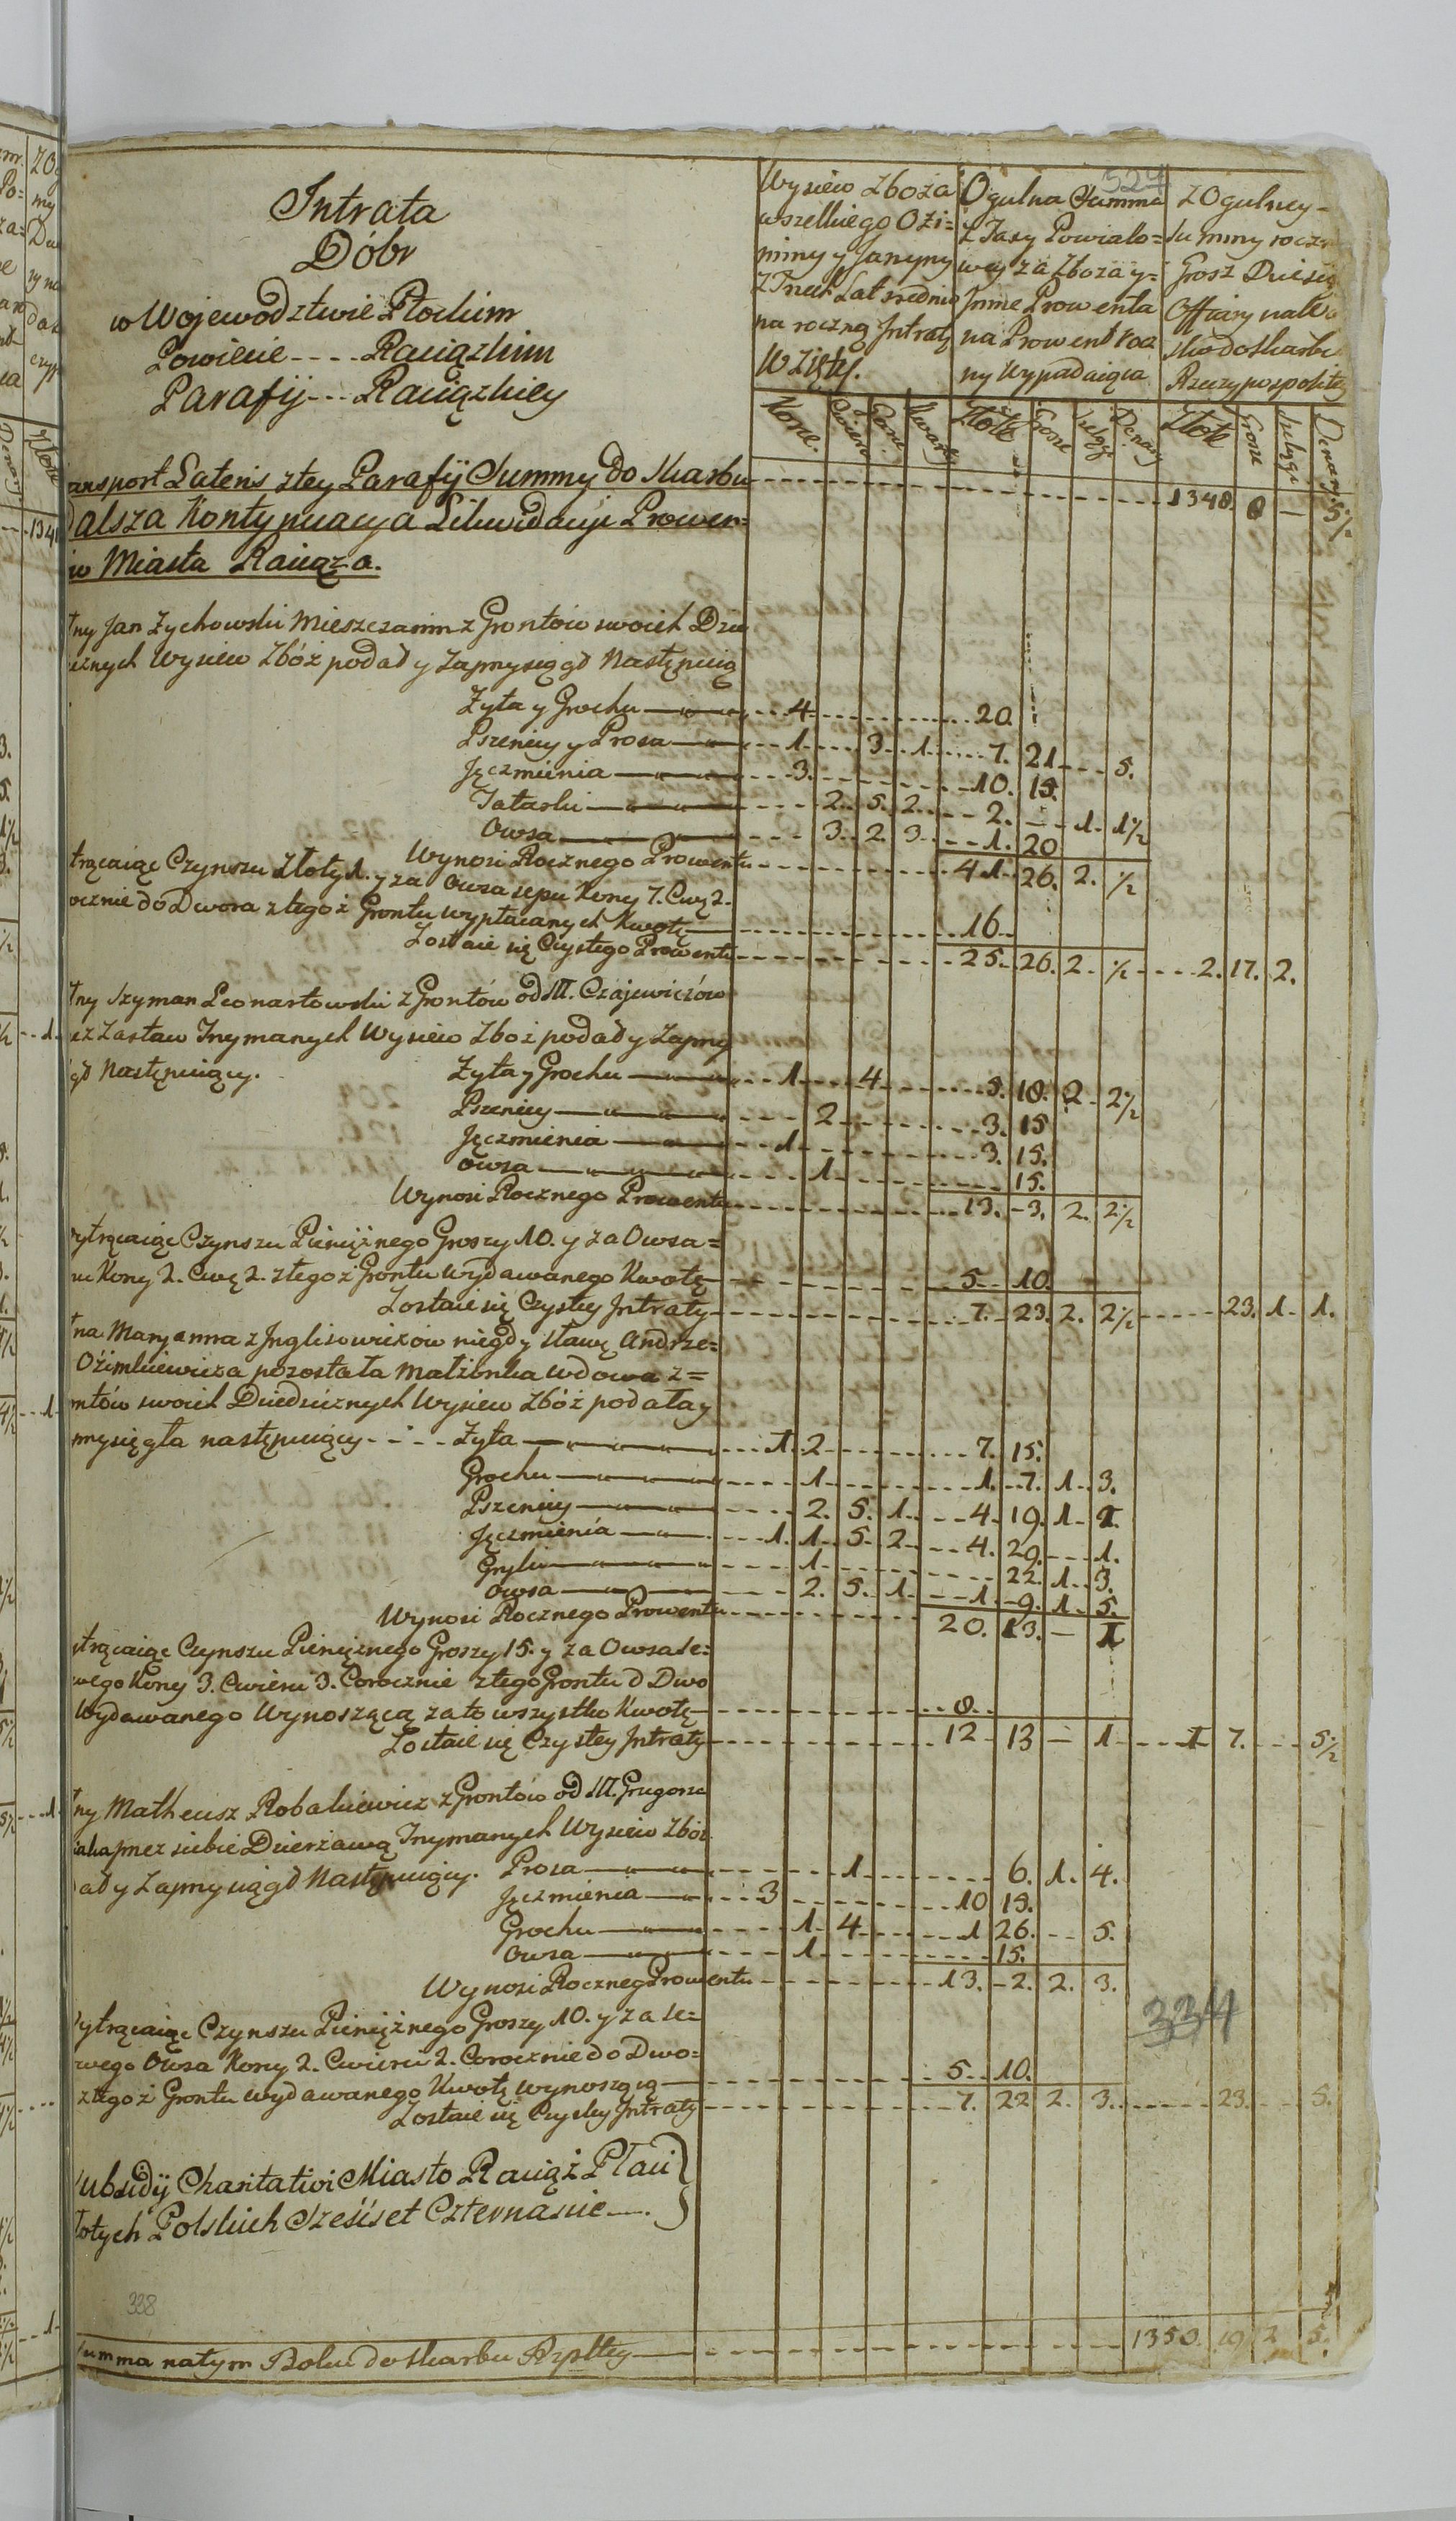 324
Intrata
Dóbr
w Wojewodztwie Płockim
Powiecie ---- Raciązkim
Parafij --- Raciązkiey
Wysiew Zboża
wszelkiego Ozi=
miny y Jarzyny
z Trzech Lat srednio
na roczną Jntratę
Wzięty.
Ogulna Summa
z Taxy Powiato=
wey za Zboża y=
Jnne Prowenta
na Prowent rocz
ny Wypadaiąca
z Ogulney -
Summy roczn
Grosz Dziesią
Offiary nale
do Skarbu
Rzeczypospolitey
Korce. Cwierci Garce Kwarty Złote Grosze Szelągi Denary Złote Grosze Szelągi Denary
ansport Lateris z tey Parafij Summy do Skarbu 1348. 0 — 5½
Dalsza Kontynuacya Likwidacyi Prowen=
w Miasta Raciąza.
tny Jan Zychowski Mieszczanin z Grontów swoich Dzie
icznych Wysiew Zbóż podał y Zaprzysiągł Następuią
Zyta y Grochu 4 20
Pszenicy y Prosa 1 3 1 7. 21 5.
Jęczmienia 3. 10. 15.
Tatarki 2. 5. 2. 2. — 1. 1½
Owsa 3. 2. 3. 1. 20
Wynosi Rocznego Prowentu 41. 26. 2. ½
trącaiąc Czynszu Złoty 1. y za Owsa sepu Korcy 7. Cwię 2.
ocznie do Dwora z tegoż Grontu wypłacanych Kwotę 16
Zostaie się Czystego Prowentu 25. 26. 2. ½ 2. 17. 2.
tny Szyman Leonartowski z Grontów od M. Czajewiczów
ez Zastaw Trzymanych Wysiew Zboż podał y Zaprzy
gł Następuiący.
Zyta y Grochu 1 4 5. 18. 2. 2½
Pszenicy 2 3. 15
Jęczmienia 1 3. 15.
Owsa 1. 15.
Wynosi Rocznego Prowentu 13. 3. 2. 2½
ytrącaiąc Czynszu Pieniężnego Groszy 10. y za Owsa=
u Korcy 2. Cwię 2. z tegoż Grontu wydawanego Kwotę 5. 10.
Zostaie się Czystey Jntraty 7. 23. 2. 2½ 23. 1. 1.
tna Maryanna z Jnglisowiczów niegdy sławę Andrze=
Ozimkiewicza pozostała Małżonka wdowa z=
ntów swoich Dziedzicznych Wysiew Zbóż podała y
przysięgła następuiący
Zyta 1. 2 7. 15.
Grochu 1 1. 7. 1. 3.
Pszenicy 2. 5. 1. 4. 19. 1. 1.
Jęczmienia 1. 1. 5. 2 4. 29. 1.
Gryki 1. 22. 1. 3.
Owsa 2. 5. 1. 1. 9. 1. 5.
Wynosi Rocznego Prowentu 20. 13. — 1
trącaiąc Czynszu Pieniężnego Groszy 15. y za Owsa Se=
wego Korcy 3. Cwierci 3. Corocznie z tego Grontu d Dwo
Wydawanego Wynoszącą za to wszystko Kwotę 8.
Zostaie się Czystey Jntraty 12 13 — 1 1 7. 5½
tny Matheusz Robakiewicz z Grontów od M. Grzegorza
iaka przez siebie Dzierżawą Trzymanych Wysiew Zbóż
ał y Zaprzysiągł Następuiący.
Prosa 1 6. 1. 4.
Jęczmienia 3 10 15.
Grochu 1. 4 1 26. 5.
Owsa 1. 15.
Wynosi Roczneg Prowentu 13. 2. 2. 3.
334
ytrącaiąc Czynszu Pieniężnego Groszy 10. y za Se=
wego Owsa Korcy 2. Cwierci 2. Corocznie do Dwo=
z tegoż Grontu wydawanego Kwotę wynoszącą 5. 10.
Zostaie się Czystey Jntraty 7. 22 2. 3. 23. 5.
ubsidij Charitativi Miasto Raciąż Płaci
łotych Polskich Sześćset Czternascie
338
umma na tym Boku do Skarbu Rzpltey 1350. 19 2 5.